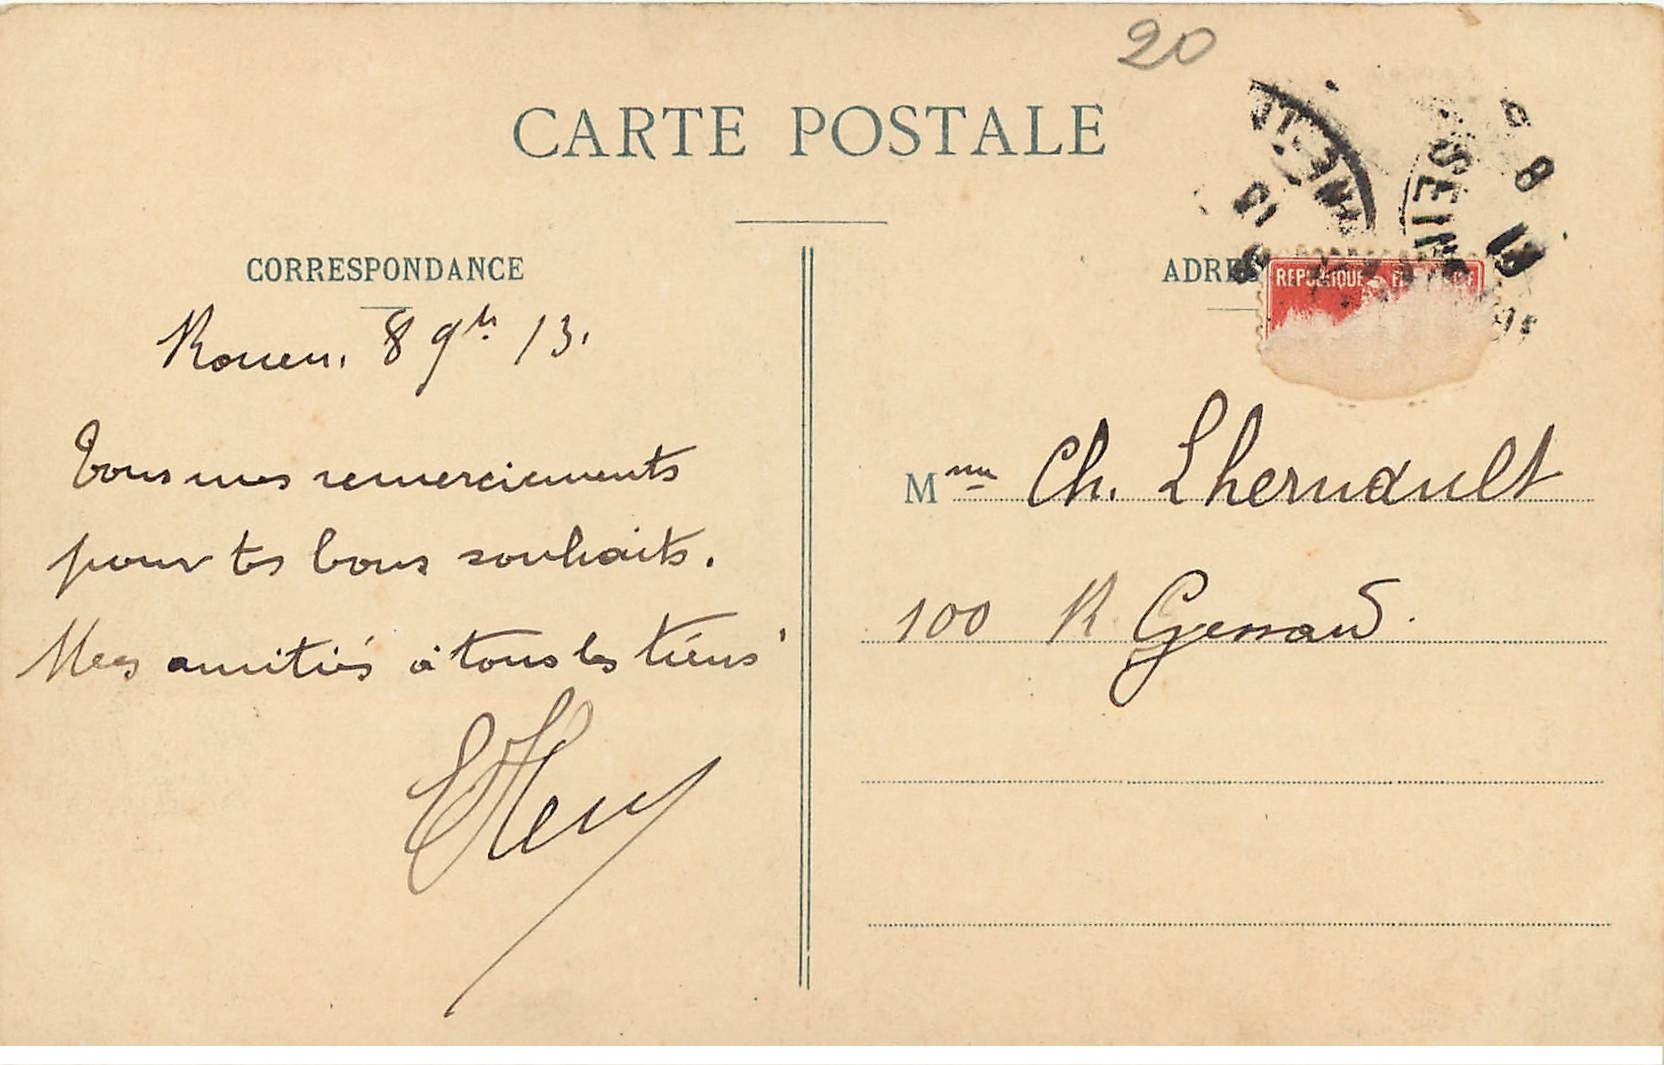 20
CARTE POSTALE
CORRESPONDANCE
Rouen. 8 9bre 13.
Tous mes remerciements
pour tes bons souhaits.
Mes amitiés à tous les tiens
ADRES
REPUBLIQUE
SEIN
8
13
Mme Ch. Lhernault
100 R